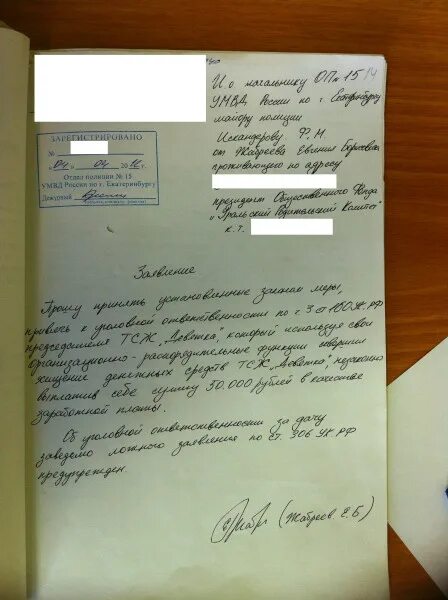 И о начальнику ОП № 15 14
УМВД России по г. Екатеринбургу
майору полиции
Искандерову. Ф. М.
от Жабреева Евгения Борисовича
проживающего по адресу
президент Общественного Фонда
"Уральский Родительский Комитет"
к.т.
ЗАРЕГИСТРИРОВАНО
№
"04" 04 20
Отдел полиции № 15
УМВД России по г. Екатеринбургу
Дежурный
Заявление
Прошу принять установленные законом меры,
привлечь к уголовной ответственности по ч. 3 ст 160 УК РФ
председателя ТСЖ "Девятка", который используя свои
организационно-распорядительные функции совершил
хищение денежных средств ТСЖ "Девятка", незаконно
выплатив себе сумму 50.000 рублей в качестве
заработной платы.
Об уголовной ответственности за дачу
заведомо ложного заявления по ст. 306 УК. РФ
предупрежден.
(Жабреев Е.Б)